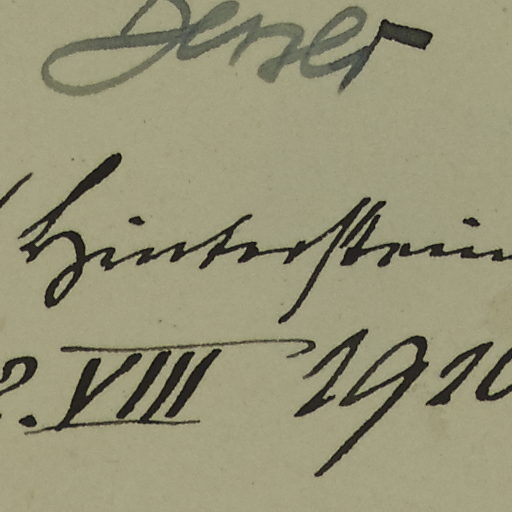 Hinterstein
2. VIII 1910